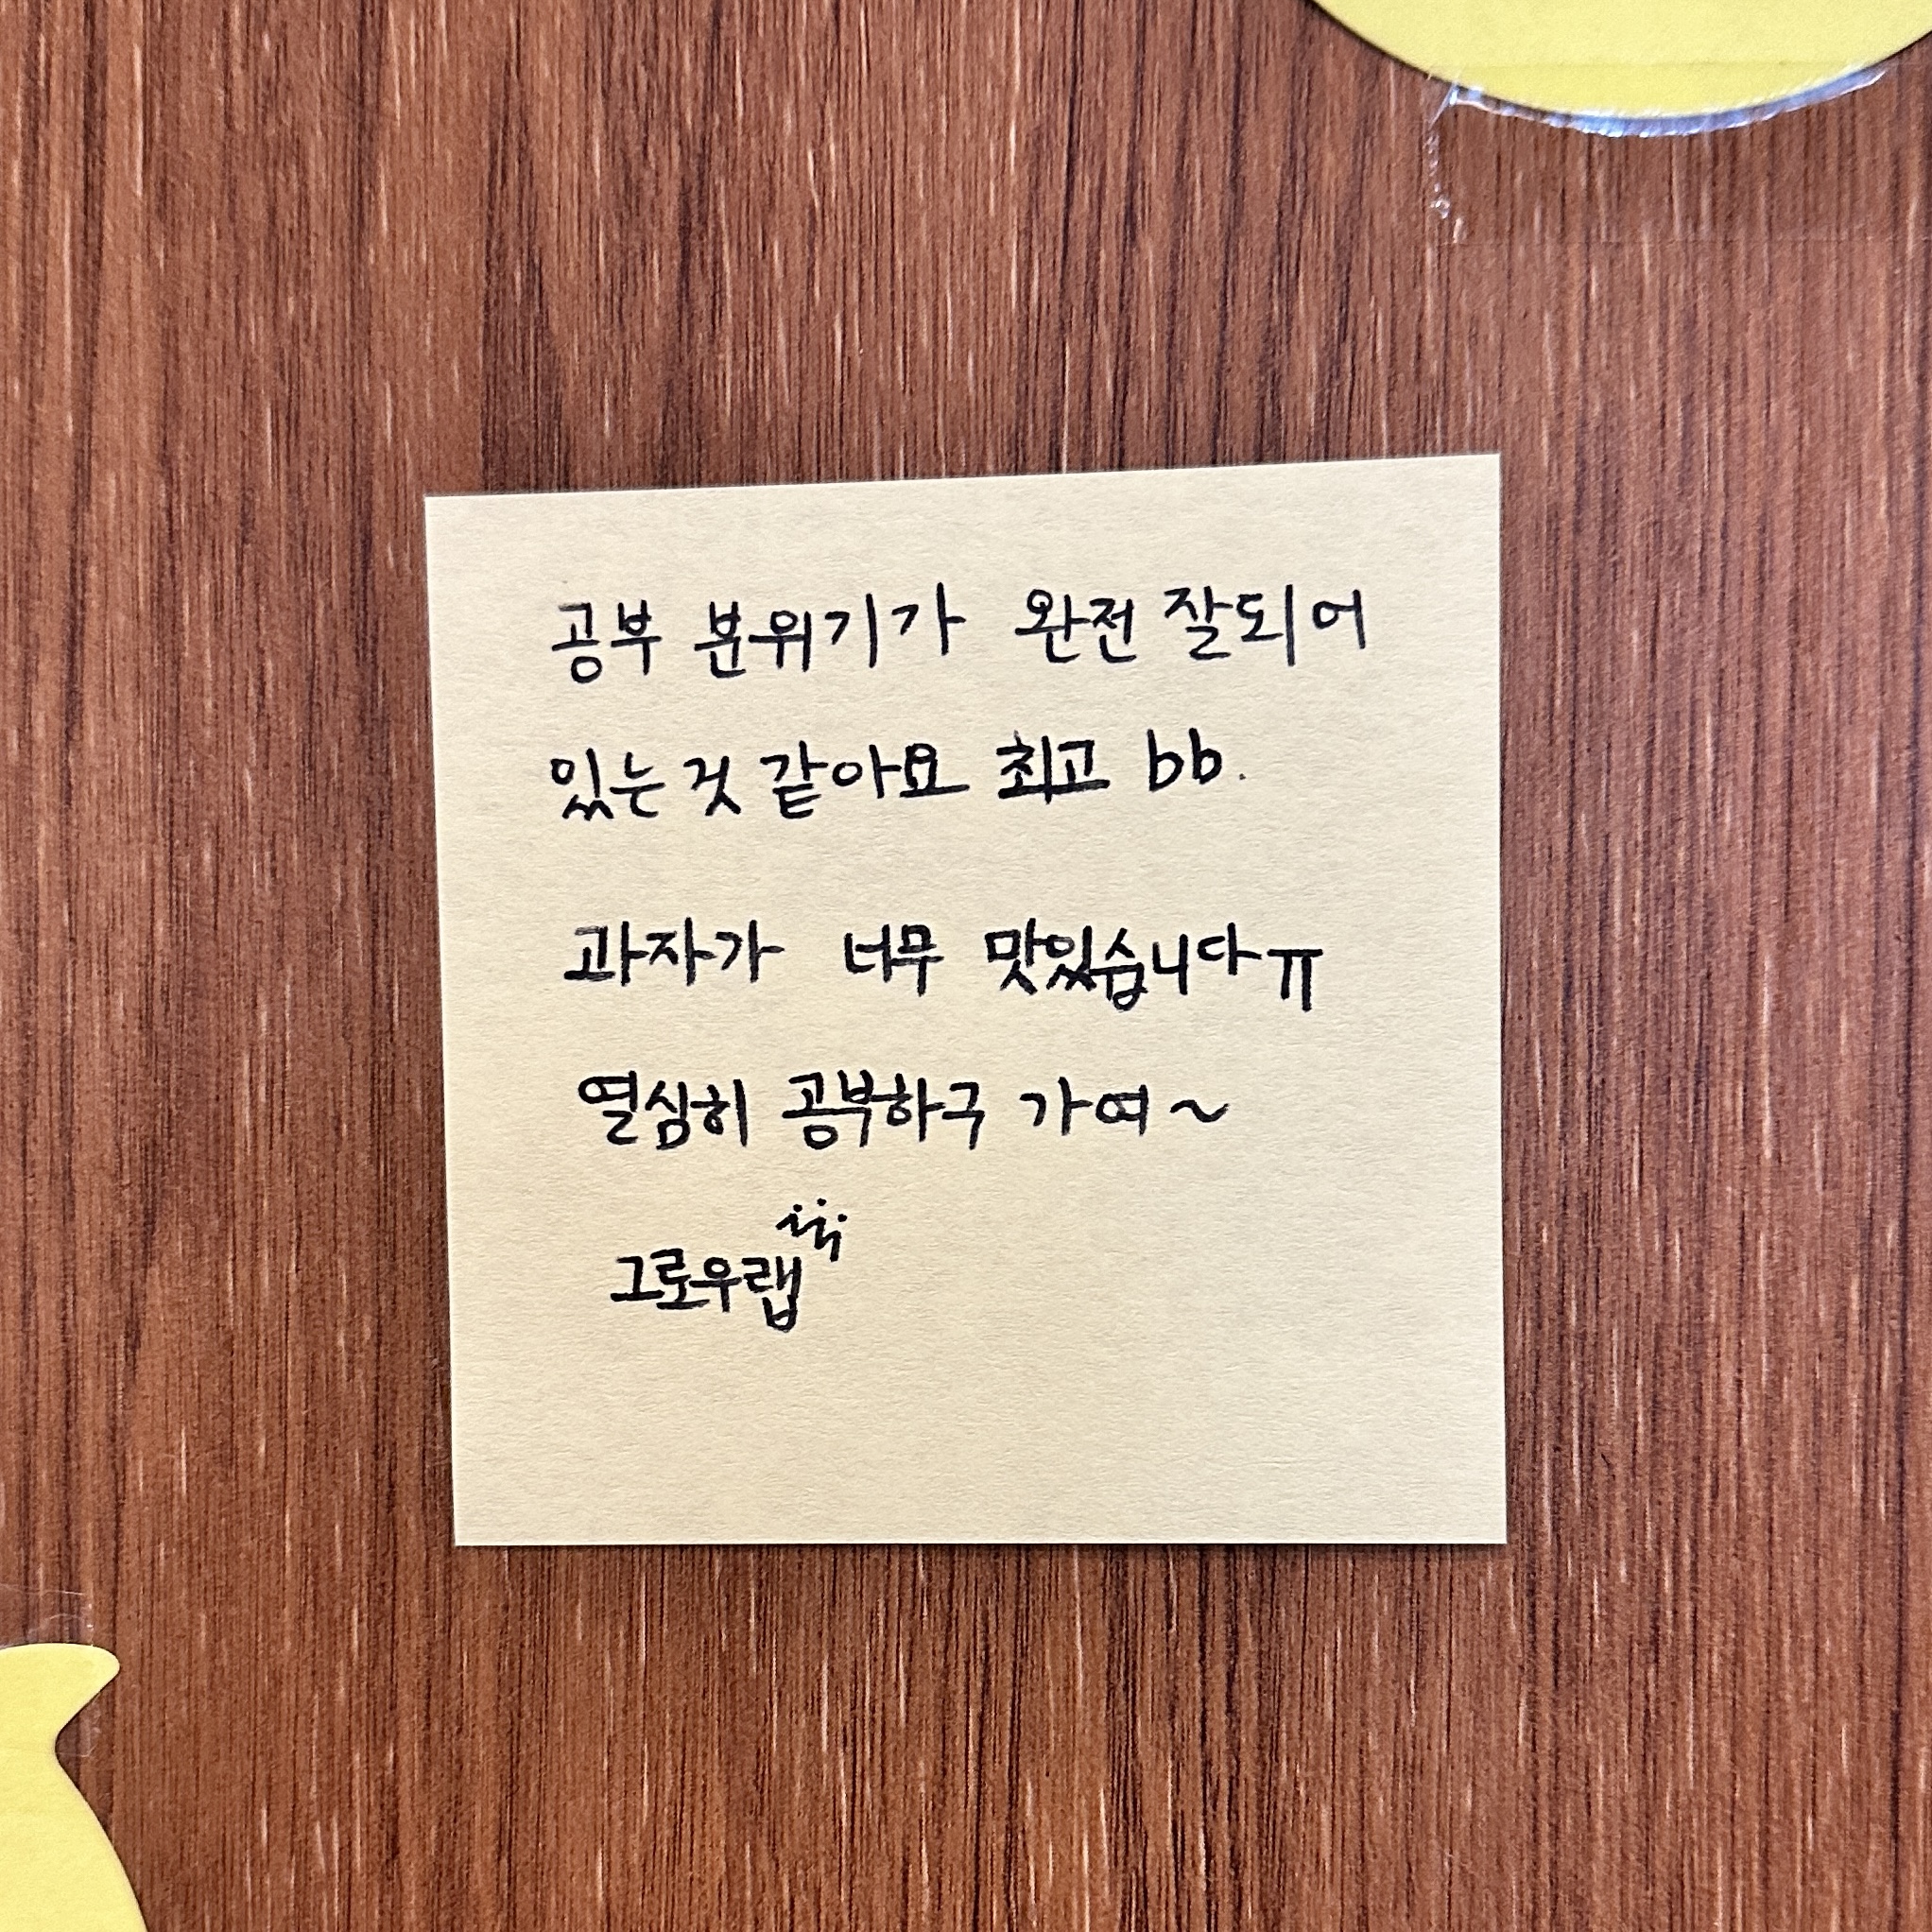 공부 분위기가 완전 잘되어
있는 것 같아요 최고 bb.
과자가 너무 맛있습니다ㅠ
열심히 공부하구 가여~
그로우랩